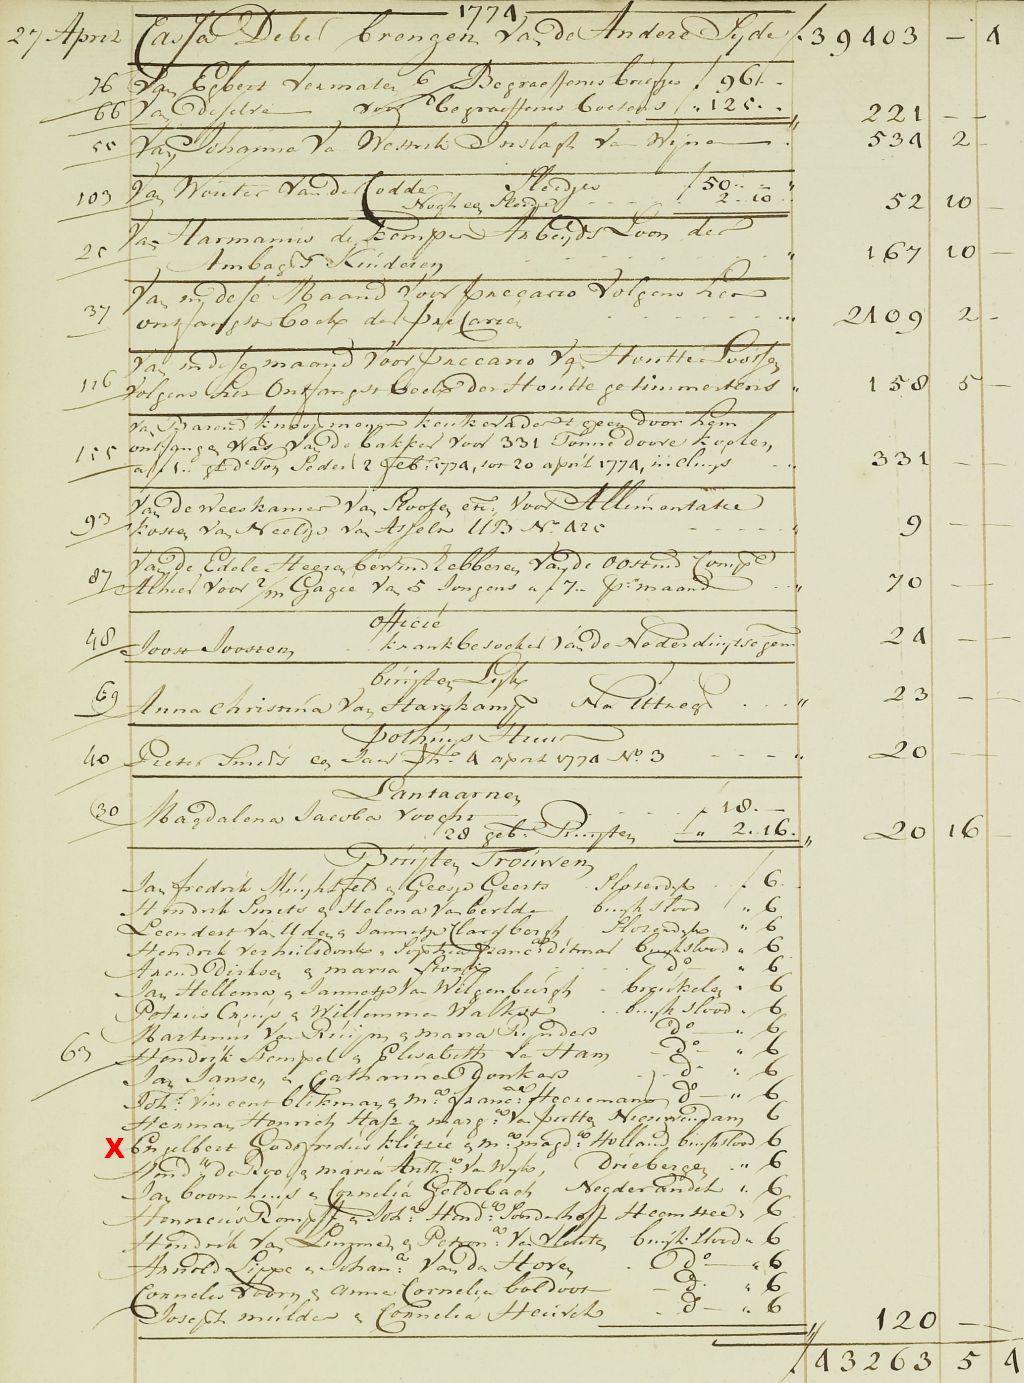 1774
27 April Cassa Debet brengen van de Andere Syde f 39403 - 4
76 Van Egbert Vermaten 6 Begraeffenis briefjes f 96.-
66 Van deselve voor begraeffenis boetens " 125.- 221 - -
55 Van Johanna Van Westrik Inslagh van Wijnen 534 2 -
103 Van Wouter van der Codde Sleedjes f 50.. -
Nogh een Sleedje 2..10 52 10 -
25 Van Harmanus de Kemper Arbeyds Loon der
Ambagts Kinderen 167 10 -
37 Van in dese Maand voor precario volgens het
ontfangst boek der precarien 2109 2 -
116 Van in dese maand voor precario van Houtte Loosen
volgens het Ontfangst boek der Houtte getimmertens 158 5 -
155 Van Barend geen door hem
ontfangen was van de bakker voor 331 Tonne doove koolen
a f 1.. Ton Sedert 2 feb: 1774, tot 20 april 1774, incluys 331 - -
93 Van de weeskamer van voor Allimentatie
kosten van Neeltje van Asselt N: 425 9 - -
87 Van de Edele Heeren bewindhebberen van de Oostind Comp:
Alhier voor 2/m Gagie van 5 Jongens a f 7.. p:r maand 70 - -
officie
48 Joost Joosten krankbesoeker van de Nederduytse gem 24 - -
buijten Lijk
69 Anna Christina van Starckamp Na Uttregt 23 - -
pothuys Huur
40 Pieter Smets een Jaar 4 april 1774 No. 3 20 - -
Lantaarnen
30 Magdalena Jacoba Vooght f 18.-
28 geb: Pruysten " 2..16. 20 16 -
Buijten Trouwen
Jan fredrik Muyhsfeld & Geesje Geerts Sloterdyk f 6.
Hendrik Smets & Helena van Gerlde buyksloot " 6
Leendert van Uden & Jannetje Clarenbergh Sloterdyk " 6
Hendrik Verhulsdonk & Sophia franc:a Ditmar buyksloot " 6
Arend Dirksen & maria do " 6
Jan Hellema & Jannetje van Wilgenburgh breukelen " 6
Petrus Cruys & Willemina Walkot buyksloot " 6
Martinus van Ruijn & maria Reynders do " 6
63 Hendrik Stempel & Elisabeth ten Ham - do - " 6
Jan Jansen & Catharina Donkers - do " 6
Joh:s Vincent blikman & m:a franc:a Heereman do - " 6
Herman Henrich Hass & marg:a van putten Nieuwendam 6
X Engelbert Godefridus Klitzie & m:a magd:a Holland buyksloot 6
Hend:k de Roo & maria Anth:a van Wyk, Driebergen " 6
Jan boomhuys & Cornelia Goldebach Neederlandch " 6
Henricus Rompff & Joh:a Hend:a Sonderhoff Heemstee " 6
Hendrik van Lingmen & Petron:a van buyksloot " 6
Arnold Lippe & Johan:a van der Hoven do - " 6
Cornelis Voorn & Anna Cornelia boldoot - do " 6
Joseph mulder & Cornelia Heurck - do - " 6 120 - -
f 43263 5 4